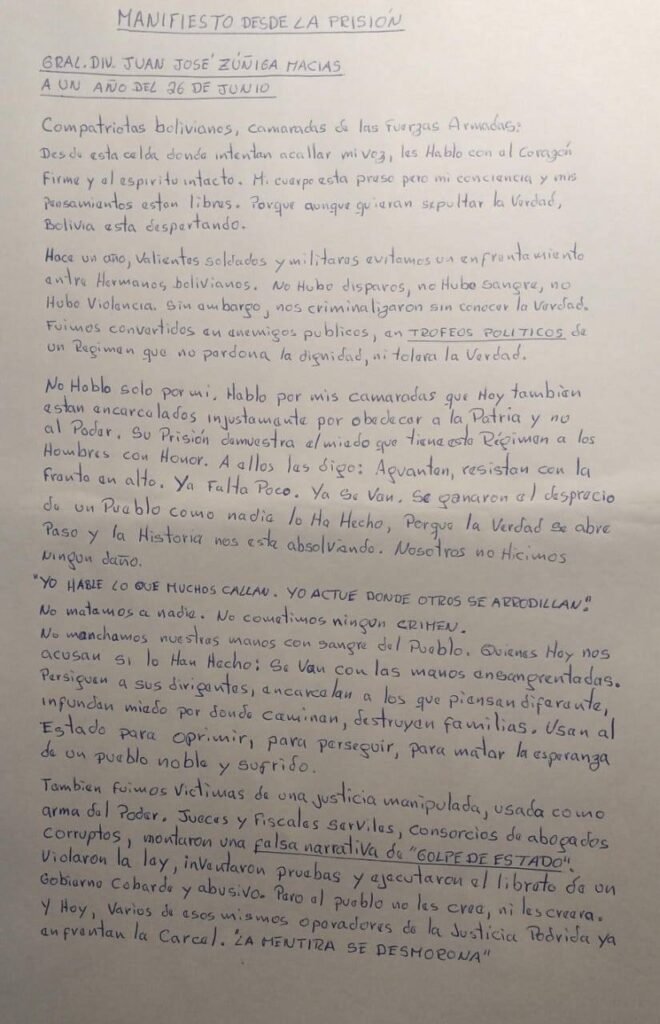 MANIFIESTO DESDE LA PRISIÓN
GRAL. DIV. JUAN JOSÉ ZÚÑIGA MACIAS
A UN AÑO DEL 26 DE JUNIO
Compatriotas bolivianos, camaradas de las Fuerzas Armadas:
Desde esta celda donde intentan acallar mi voz, les Hablo con el Corazón
Firme y el espiritu intacto. Mi cuerpo esta preso pero mi conciencia y mis
pensamientos estan libres. Porque aunque quieran sepultar la Verdad,
Bolivia esta despertando.
Hace un año, Valientes soldados y militares evitamos un enfrentamiento
entre Hermanos bolivianos. No Hubo disparos, no Hubo Sangre, no
Hubo Violencia. Sin embargo, nos criminalizaron sin conocer la Verdad.
Fuimos convertidos en enemigos publicos, en TROFEOS POLITICOS de
un Regimen que no perdona la dignidad, ni tolera la Verdad.
No Hablo solo por mi. Hablo por mis camaradas que Hoy tambien
estan encarcelados injustamente por obedecer a la Patria y no
al Poder. Su Prisión demuestra el miedo que tiene este Régimen a los
Hombres con Honor. A ellos les digo: Aguanten, resistan con la
frente en alto. Ya Falta Poco. Ya Se Van. Se ganaron el desprecio
de un Pueblo como nadie lo Ha Hecho, Porque la Verdad se abre
Paso y la Historia nos esta absolviendo. Nosotros no Hicimos
Ningun daño.
"YO HABLE LO QUE MUCHOS CALLAN. YO ACTUE DONDE OTROS SE ARRODILLAN."
No matamos a nadie. No cometimos ningun CRIMEN.
No manchamos nuestras manos con sangre del Pueblo. Quienes Hoy nos
acusan si lo Han Hecho: Se Van con las manos ensangrentadas.
Persiguen a sus dirigentes, encarcelan a los que piensan diferente,
infunden miedo por donde caminan, destruyen familias. Usan al
Estado para oprimir, para perseguir, para matar la esperanza
de un pueblo noble y sufrido.
Tambien fuimos Victimas de una justicia manipulada, usada como
arma del Poder. Jueces y Fiscales serviles, consorcios de abogados
corruptos, montaron una falsa narrativa de "GOLPE DE ESTADO".
Violaron la ley, inventaron pruebas y ejecutaron el libreto de un
Gobierno Cobarde y abusivo. Pero el pueblo no les cree, ni les creera.
Y Hoy, Varios de esos mismos operadores de la Justicia Podrida ya
enfrentan la Carcel. "LA MENTIRA SE DESMORONA"